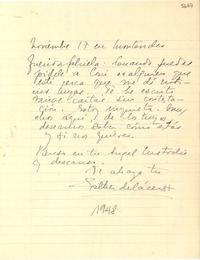 Noviembre 17 en Montevideo
Querida Gabriela: Cuando puedas
pídele a Coni o a alguien que
esté cerca que me dé noticias
tuyas. Te he escrito
varias cartas sin contesta-
ción. Estoy inquieta. Muchos
aquí de los tuyos
deseamos saber cómo estás
y si nos quieres.
Piensa en tu Angel Custodio
y descansa.
Te abraza tu
Esther de Cáceres
1948.